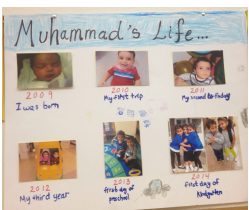 Muhammad's Life...
2009
I was born
2010
My first trip
2011
My second birthday
2012
My third year
2013
first day of
preschool
2014
first day of